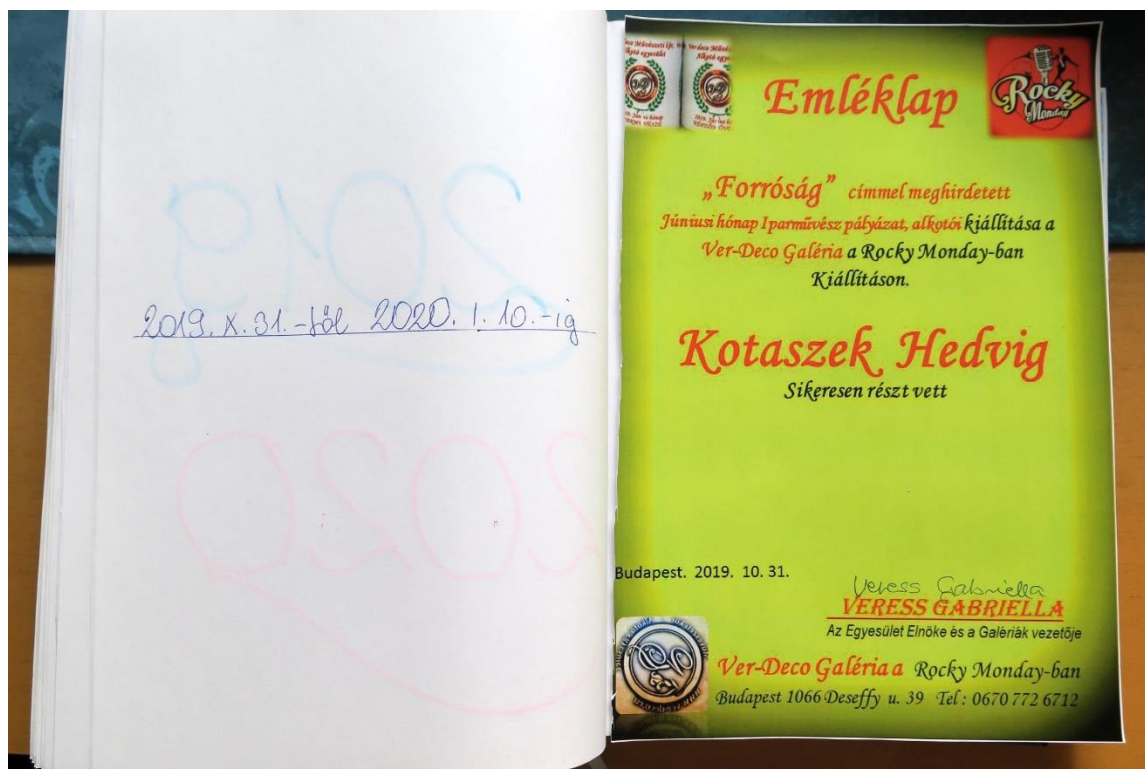 2019. X. 31.-től 2020. I. 10.-ig
Emléklap
Rocky
Monday
„Forróság” címmel meghirdetett
Júniusi hónap Iparművész pályázat, alkotói kiállítása a
Ver-Deco Galéria a Rocky Monday-ban
Kiállításon.
Kotaszek Hedvig
Sikeresen részt vett
Budapest. 2019. 10. 31.
Veress Gabriella
VERESS GABRIELLA
Az Egyesület Elnöke és a Galériák vezetője
Ver-Deco Galéria a Rocky Monday-ban
Budapest 1066 Deseffy u. 39 Tel : 0670 772 6712
2019
2020